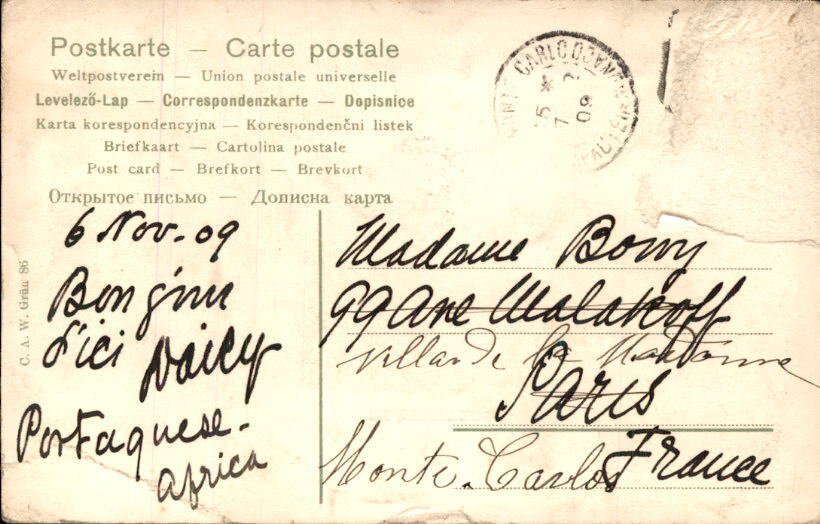 Postkarte — Carte postale
Weltpostverein — Union postale universelle
Levelező-Lap — Correspondenzkarte — Dopisnice
Karta korespondencyjna — Korespondenčni listek
Briefkaart — Cartolina postale
Post card — Brefkort — Brevkort
Открытое письмо — Дописна карта
CARLO
09
C. & W. Grün 86
6 Nov. 09
Bonjour
d'ici
Daisy
Portaguese-
Africa
Madame Bowy
99 Ave Malakoff
Villa de la Madonne
Paris
France
Monte. Carlo